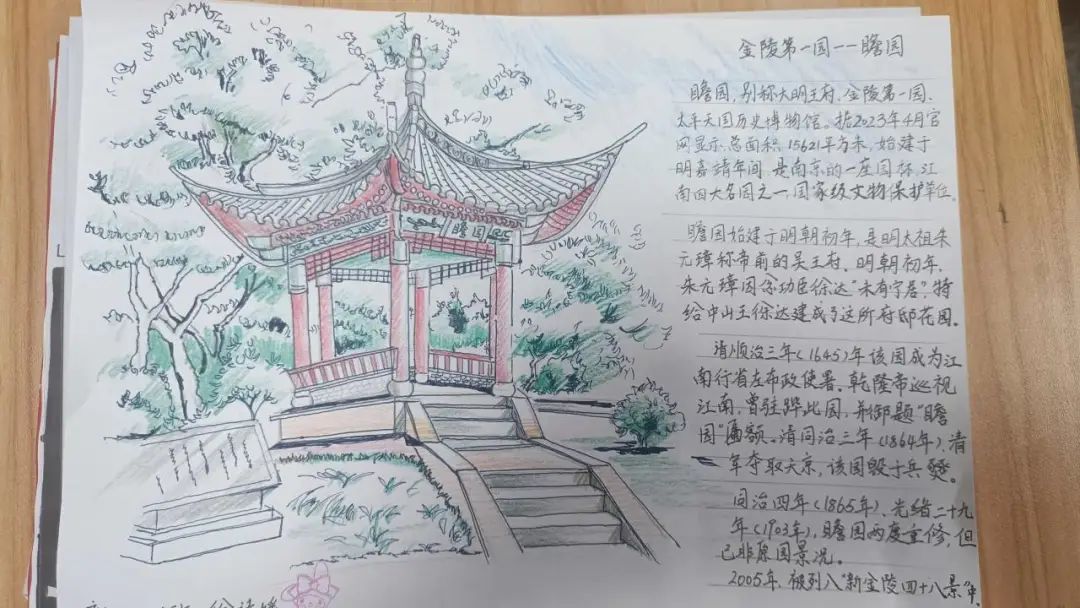 金陵第一园——瞻园
瞻园，别称大明王府、金陵第一园、
太平天国历史博物馆。据2023年4月官
网显示，总面积15621平方米，始建于
明嘉靖年间，是南京的一座园林，江
南四大名园之一，国家级文物保护单位。
瞻园始建于明朝初年，是明太祖朱
元璋称帝前的吴王府，明朝初年，
朱元璋因念功臣徐达"未有宁居"，特
给中山王徐达建成了这所府邸花园。
清顺治三年（1645）年该园成为江
南行省左布政使署，乾隆帝巡视
江南，曾驻跸此园，并御题"瞻
园"匾额。清同治三年（1864年），清
军夺取天京，该园毁于兵燹。
同治四年（1865年）、光绪二十九
年（1903年），瞻园两度重修，但
已非原园景况。
2005年，被列入"新金陵四十八景"中
瞻园